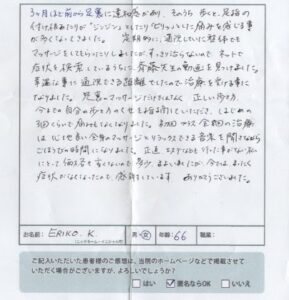 3ヶ月ほど前から足裏に違和感があり、そのうち歩くと、足指の
付け根あたりが"ジンジン"としたり"ピリッ"とした痛みを感じる事
が多くなってきました。定期的に通院していた整体でも
マッサージをしてもらったりしましたが、すっきり治らないので、ネットで
症状を検索しているうちに、斉藤先生の動画を見つけました。
幸運な事に通院できる距離でしたので治療を受ける事に
なりました。足裏のマッサージだけでなく、正しい歩き方
今までの自分の歩き方のくせを指摘していただき、はじめの
3回くらいで痛みがとれました。
は心地良い全身のマッサージとリラックスできる音楽を聞きながら
ごほうびの時間になりました。正直、
今ではまったく
症状がなくなったので、感謝しています ありがとうございました。
お名前：ERIKO. K. 男・女 年齢：66 職業：
（ニックネーム・イニシャル可）
ご記入いただいた患者様のご感想は、当院のホームページなどで掲載させて
いただく場合がございますが、よろしいでしょうか？
はい 匿名ならOK いいえ